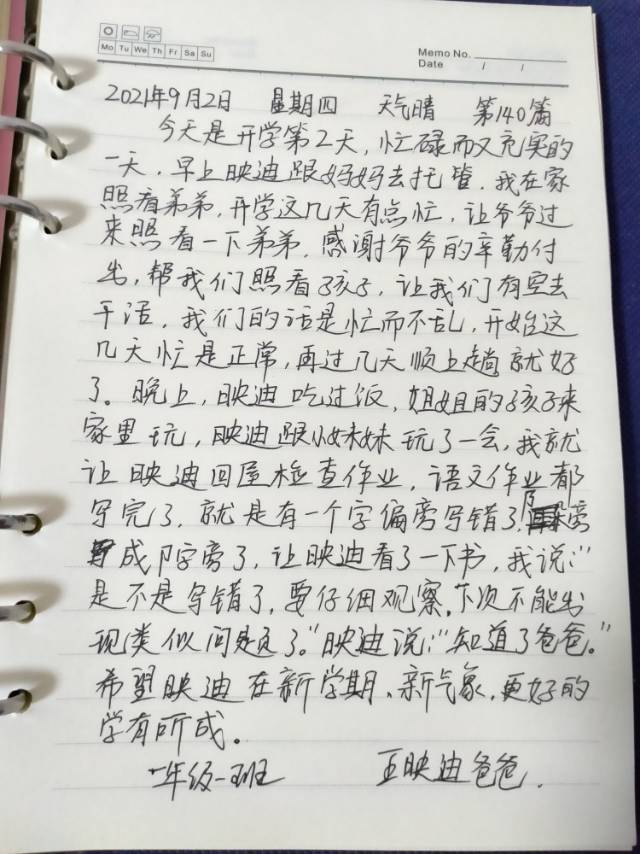 Mo Tu We Th Fr Sa Su
Memo No.
Date / /
2021年9月2日 星期四 天气晴 第140篇
今天是开学第2天,忙碌而又充实的
一天,早上映迪跟妈妈去托管,我在家
照看弟弟,开学这几天有点忙,让爷爷过
来照看一下弟弟,感谢爷爷的辛勤付
出,帮我们照看孩子,让我们有空去
干活,我们的话是忙而不乱,开始这
几天忙是正常,再过几天顺上趟就好
了。晚上,映迪吃过饭,姐姐的孩子来
家里玩,映迪跟小妹妹玩了一会,我就
让映迪回屋检查作业,语文作业都
写完了,就是有一个字偏旁写错了,旁
写成卩字旁了,让映迪看了一下书,我说:“
是不是写错了,要仔细观察,下次不能出
现类似问题了。”映迪说:“知道了爸爸。”
希望映迪在新学期、新气象,更好的
学有所成。
一年级一班 王映迪爸爸.